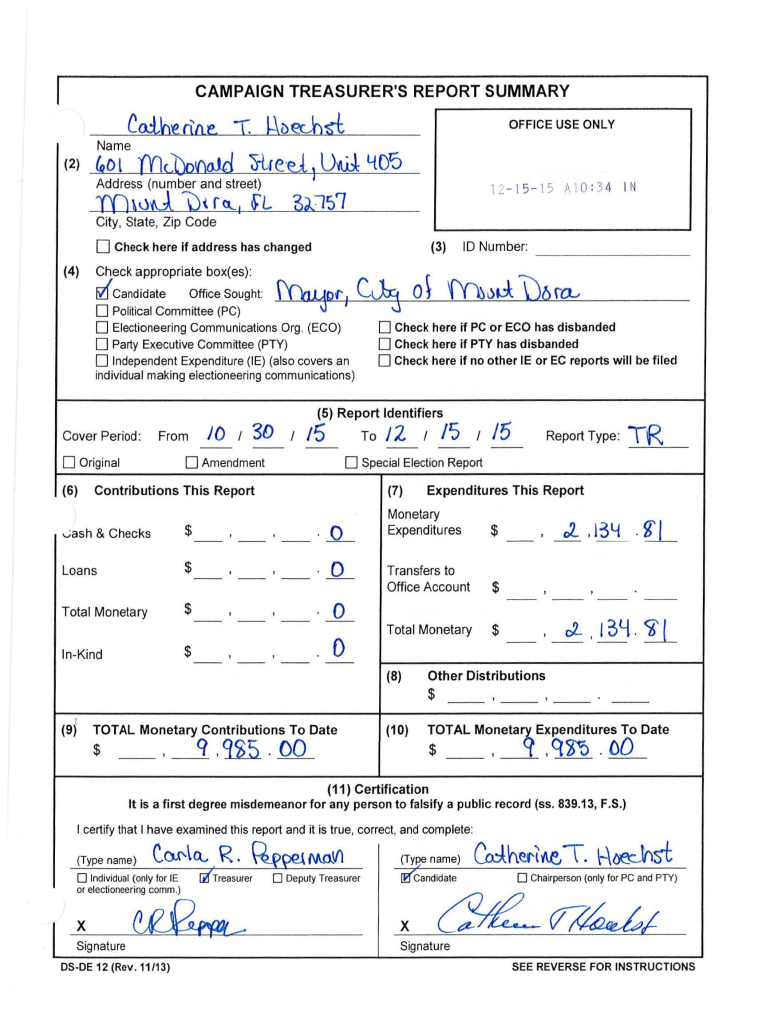 CAMPAIGN TREASURER'S REPORT SUMMARY
Catherine T. Hoechst
Name
OFFICE USE ONLY
(2) 601 McDonald Street, Unit 405
Address (number and street)
12-15-15 A10:34 IN
Mount Dora, FL 32757
City, State, Zip Code
Check here if address has changed
(3) ID Number:
(4) Check appropriate box(es):
Candidate Office Sought: Mayor, City of Mount Dora
Political Committee (PC)
Electioneering Communications Org. (ECO) Check here if PC or ECO has disbanded
Party Executive Committee (PTY) Check here if PTY has disbanded
Independent Expenditure (IE) (also covers an Check here if no other IE or EC reports will be filed
individual making electioneering communications)
(5) Report Identifiers
Cover Period: From 10 / 30 / 15 To 12 / 15 / 15 Report Type: TR
Original Amendment Special Election Report
(6) Contributions This Report
Cash & Checks $ , , . 0
Loans $ , , . 0
Total Monetary $ , , . 0
In-Kind $ , , . 0
(7) Expenditures This Report
Monetary
Expenditures $ , 2 , 134 . 81
Transfers to
Office Account $ , , .
Total Monetary $ , 2 , 134 . 81
(8) Other Distributions
$ , , .
(9) TOTAL Monetary Contributions To Date
$ , 9 , 985 . 00
(10) TOTAL Monetary Expenditures To Date
$ , 9 , 985 . 00
(11) Certification
It is a first degree misdemeanor for any person to falsify a public record (ss. 839.13, F.S.)
I certify that I have examined this report and it is true, correct, and complete:
(Type name) Carla R. Pepperman
Individual (only for IE Treasurer Deputy Treasurer
or electioneering comm.)
X CRPepper
Signature
(Type name) Catherine T. Hoechst
Candidate Chairperson (only for PC and PTY)
X Catherine T Hoechst
Signature
DS-DE 12 (Rev. 11/13) SEE REVERSE FOR INSTRUCTIONS